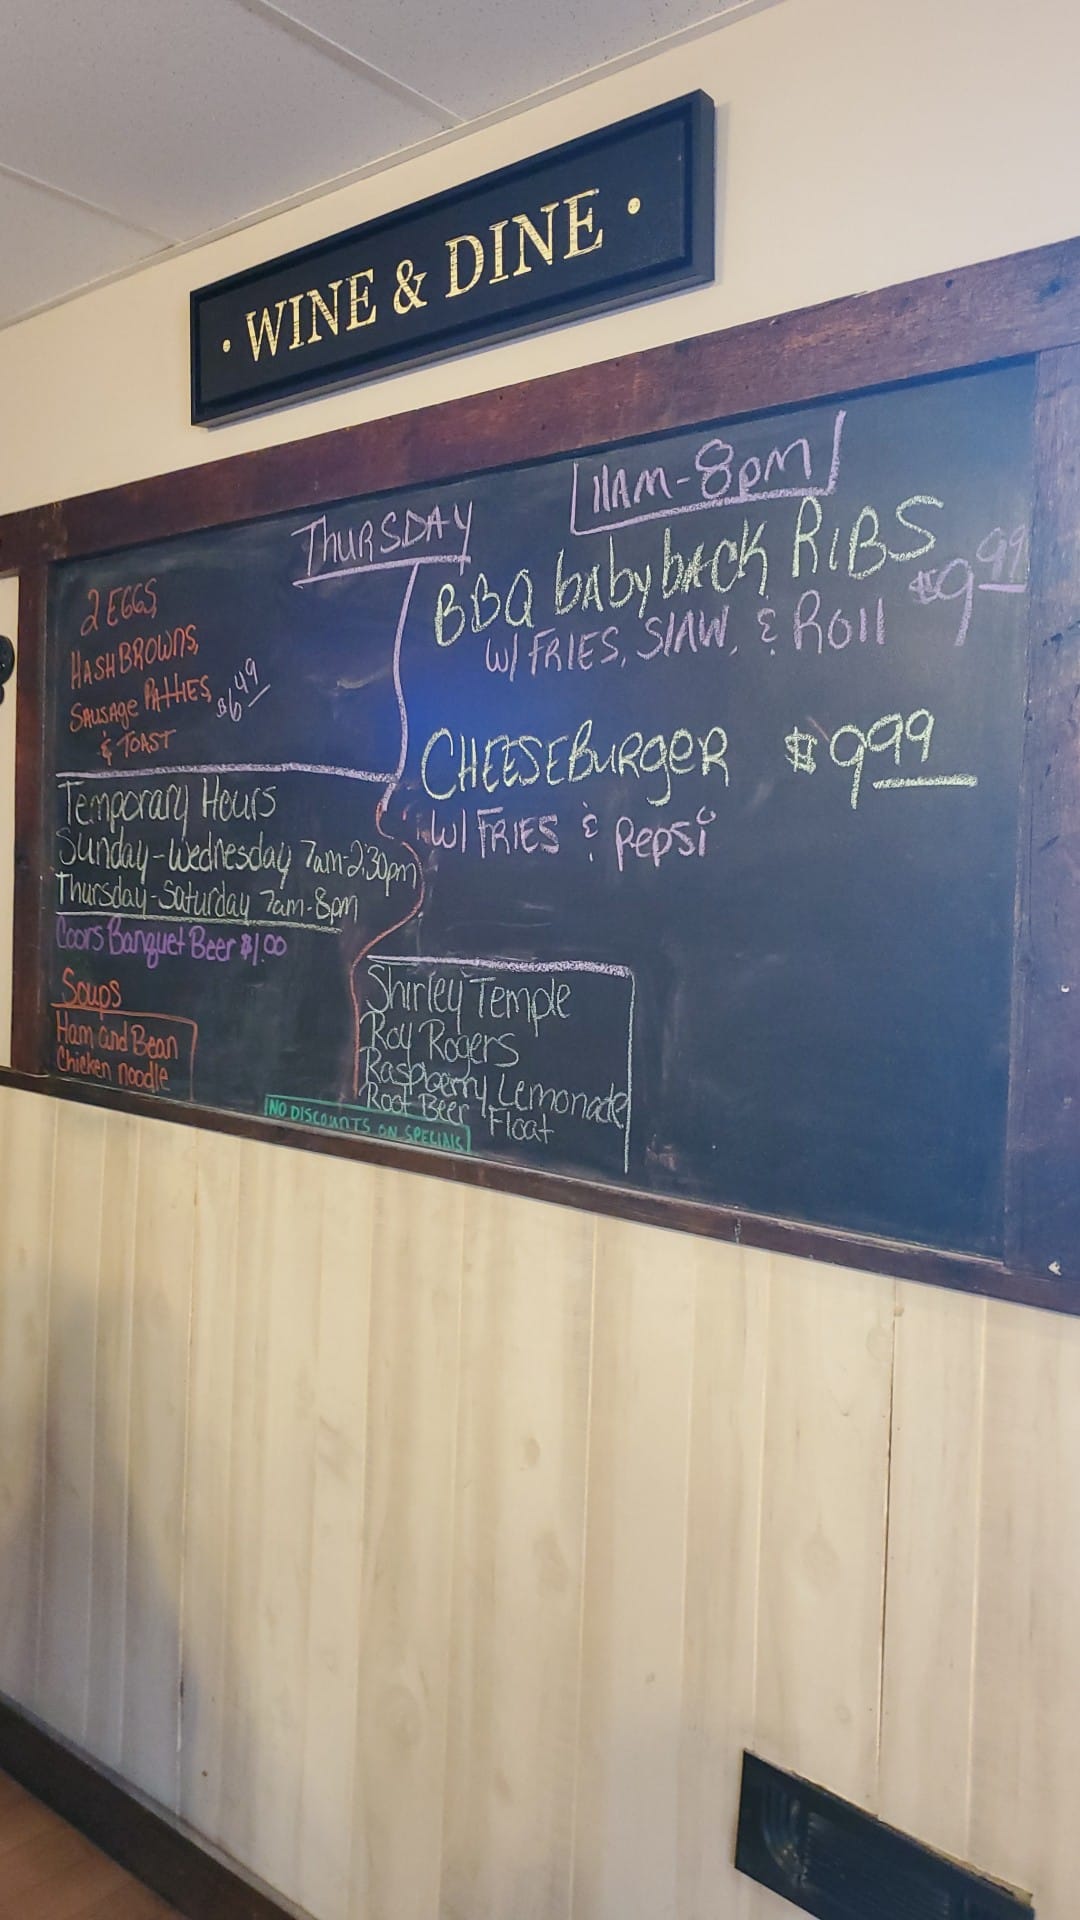 • WINE & DINE •
THURSDAY
2 EGGS,
HASHBROWNS,
SAUSAGE PATTIES, $6.49
& TOAST
Temporary Hours
Sunday-Wednesday 7am-2:30pm
Thursday-Saturday 7am-8pm
Coors Banquet Beer $1.00
Soups
Ham and Bean
Chicken noodle
11AM-8pm
BBQ babyback RIBS $9.99
W/ FRIES, SLAW, & Roll
CHEESEBURgER $9.99
W/ FRIES & Pepsi
Shirley Temple
Roy Rogers
Raspberry Lemonade
Root Beer Float
NO DISCOUNTS ON SPECIALS